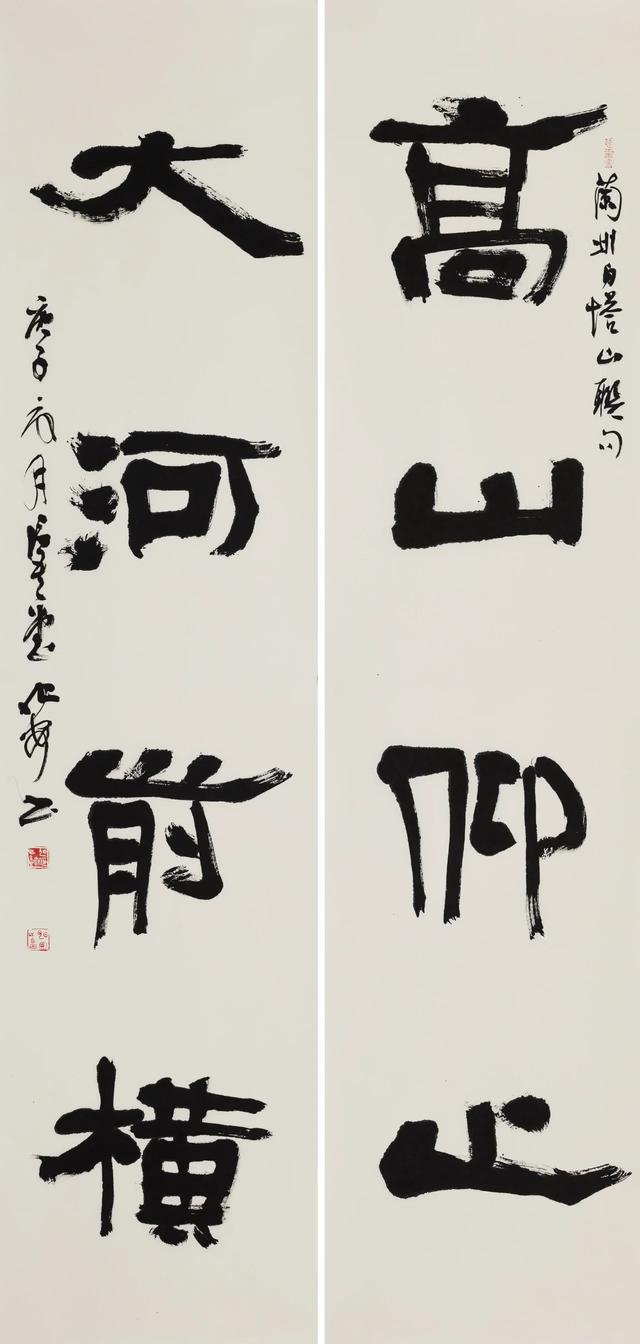 高山仰止
蘭州白塔山聯句
大河前橫
庚子 月 堂 書